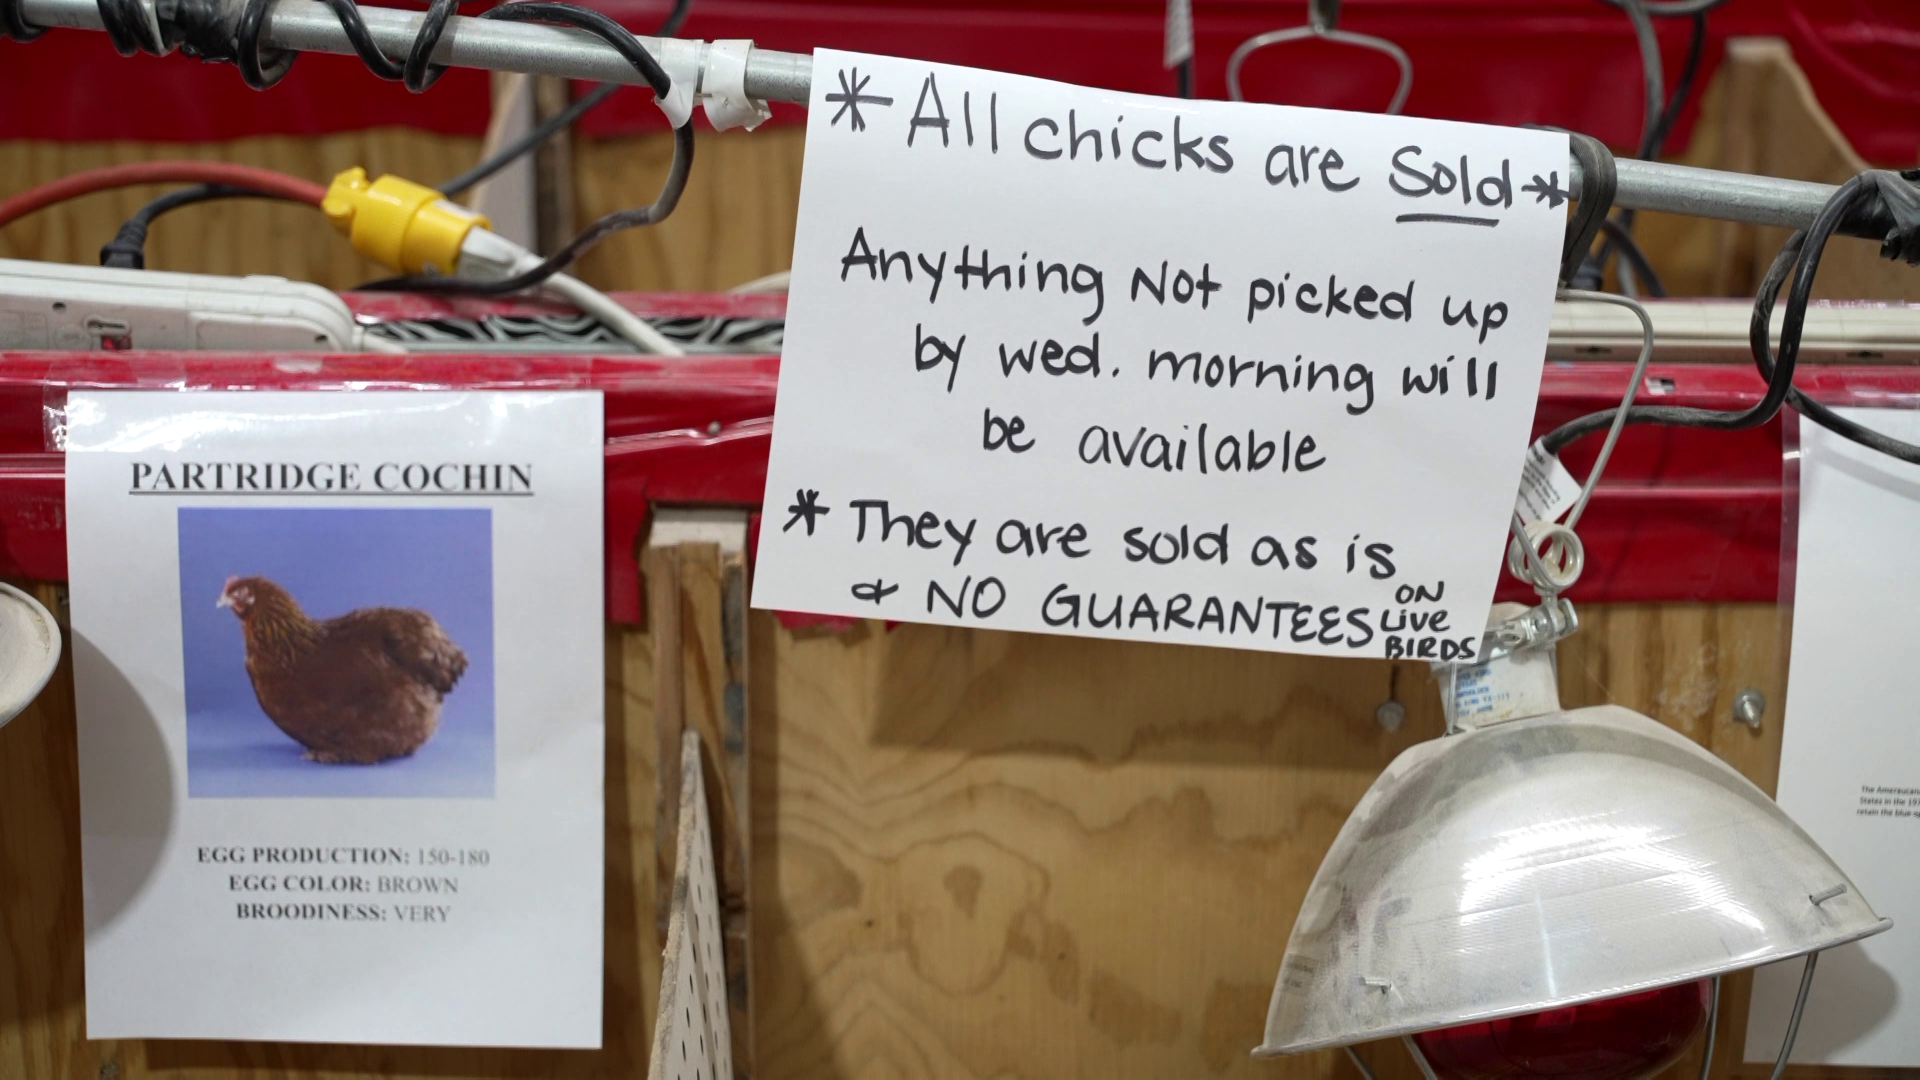 * All chicks are Sold *
Anything Not picked up
by wed. morning will
be available
* They are sold as is
& NO GUARANTEES ON
Live
BIRDS
PARTRIDGE COCHIN
EGG PRODUCTION: 150-180
EGG COLOR: BROWN
BROODINESS: VERY
The Ameraucan
States in the 197
retain the blue-eg